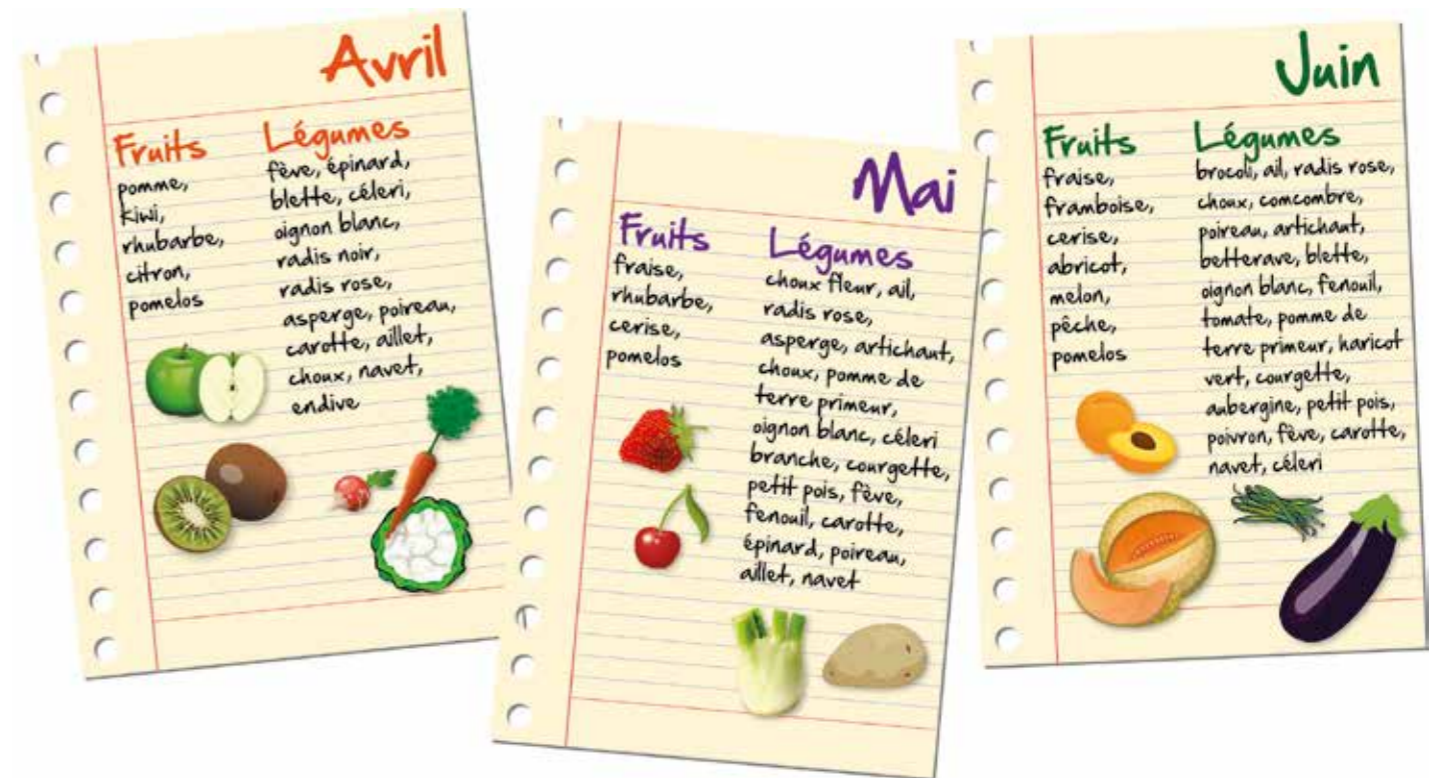 Avril
Fruits
pomme,
kiwi,
rhubarbe,
citron,
pomelos
Légumes
fève, épinard,
blette, céleri,
oignon blanc,
radis noir,
radis rose,
asperge, poireau,
carotte, aillet,
choux, navet,
endive
Mai
Fruits
fraise,
rhubarbe,
cerise,
pomelos
Légumes
choux fleur, ail,
radis rose,
asperge, artichaut,
choux, pomme de
terre primeur,
oignon blanc, céleri
branche, courgette,
petit pois, fève,
fenouil, carotte,
épinard, poireau,
aillet, navet
Juin
Fruits
fraise,
framboise,
cerise,
abricot,
melon,
pêche,
pomelos
Légumes
brocoli, ail, radis rose,
choux, comcombre,
poireau, artichaut,
betterave, blette,
oignon blanc, fenouil,
tomate, pomme de
terre primeur, haricot
vert, courgette,
aubergine, petit pois,
poivron, fève, carotte,
navet, céleri